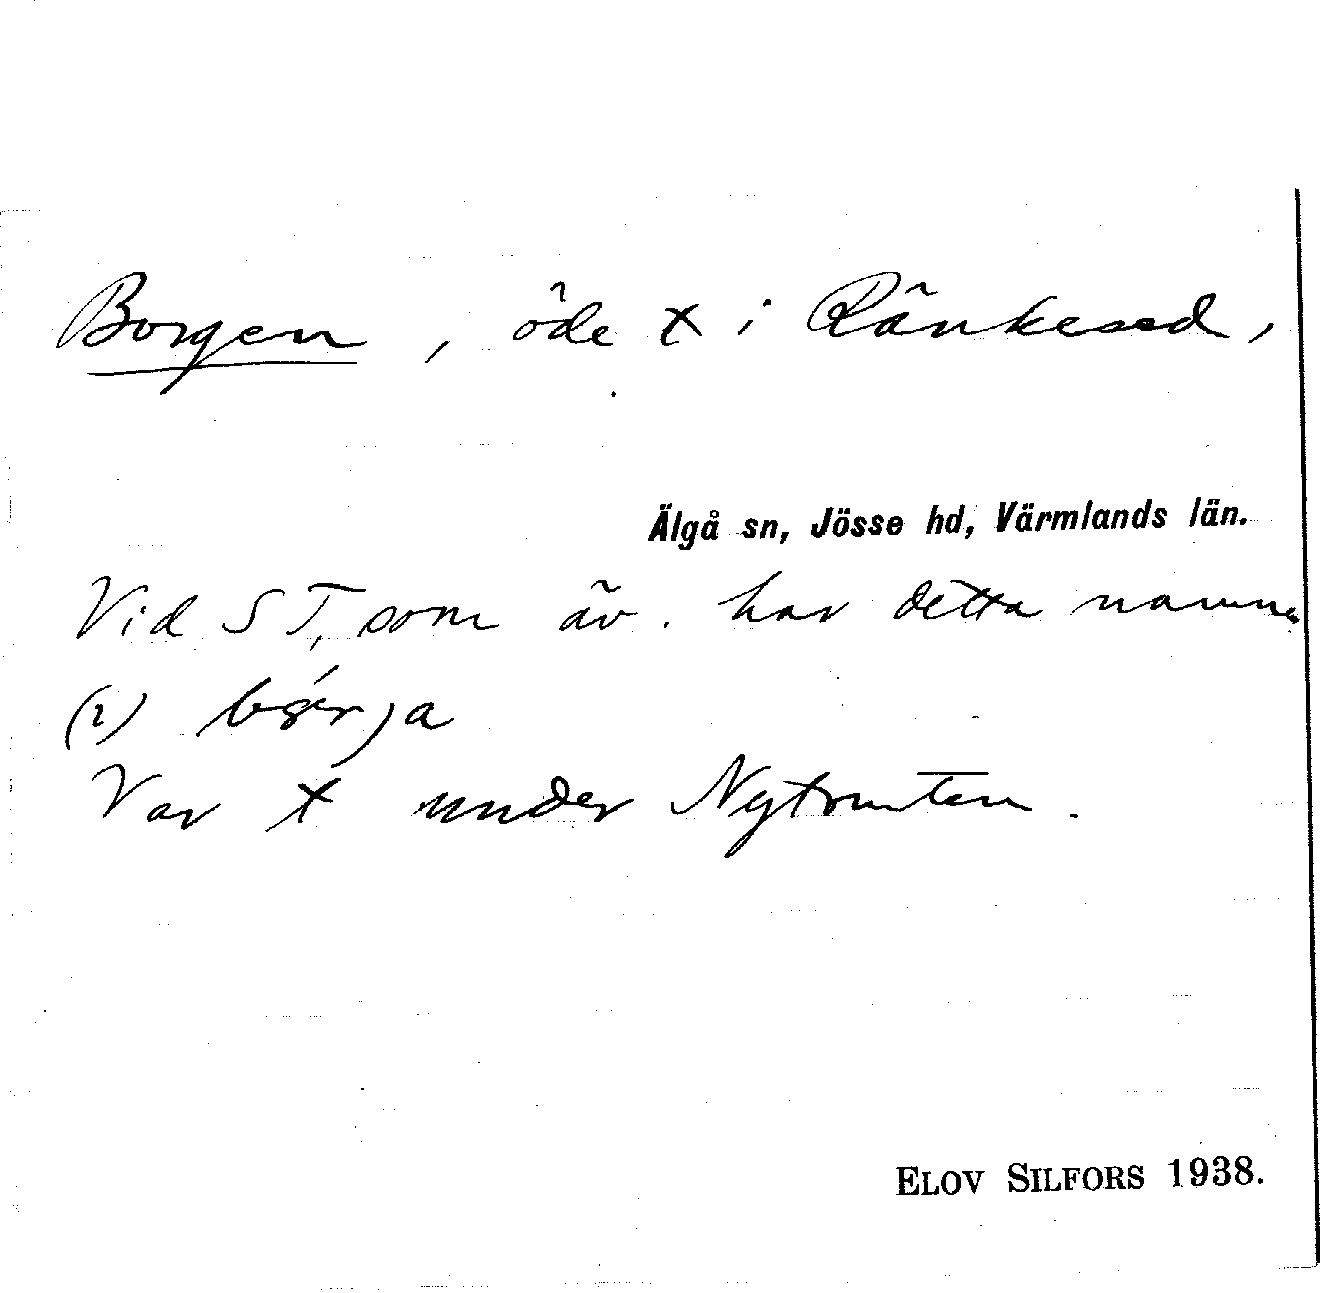 Borgen, öde x i Ränkesed,
Älgå sn, Jösse hd, Värmlands län.
Vid ST, som äv. har detta namn.
(2) börja
Var x under Nytomten.
ELOV SILFORS 1938.